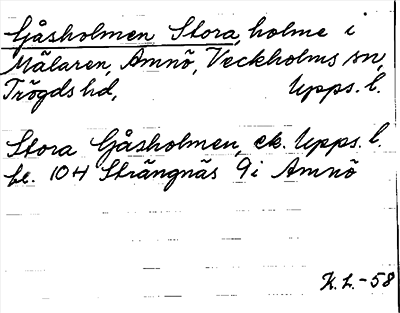 Gåsholmen Stora, holme i
Mälaren, Amnö, Veckholms sn,
Trögds hd, Upps. l.
Stora Gåsholmen, ek. Upps. l.
bl. 104 Strängnäs 9 i Amnö
K. L. - 58